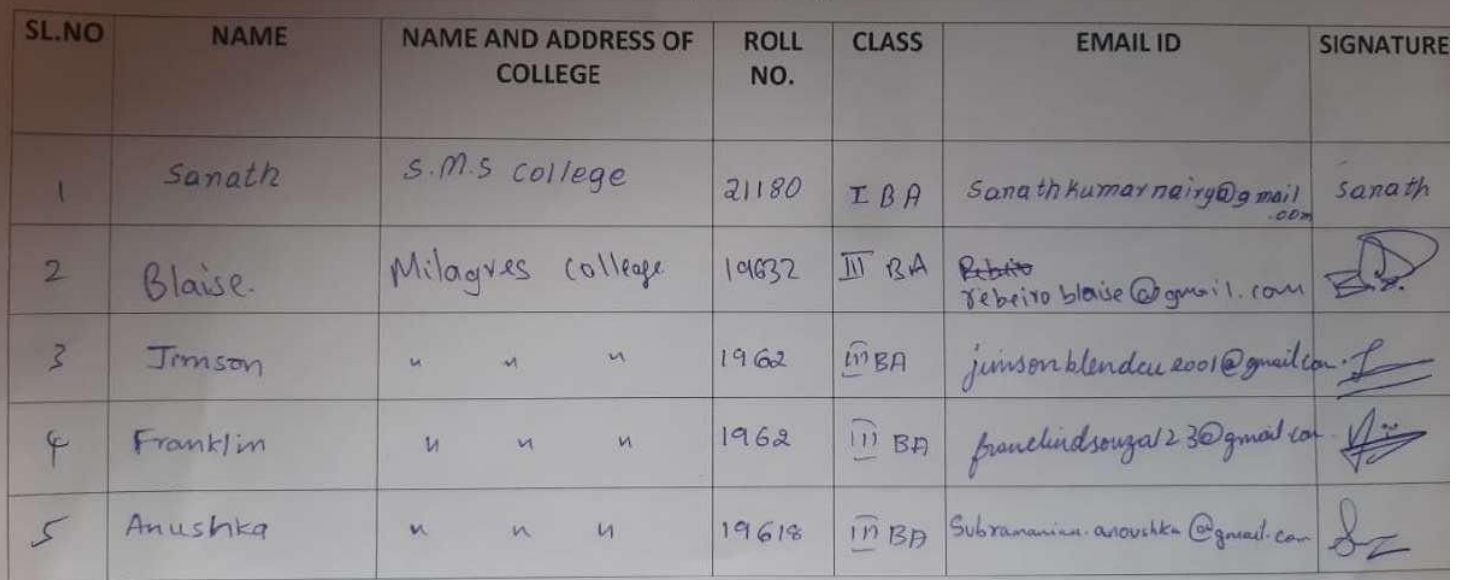 SL.NO NAME NAME AND ADDRESS OF COLLEGE ROLL NO. CLASS EMAIL ID SIGNATURE
1 Sanath S.M.S College 21180 I BA Sanathkumarnairy@gmail.com Sanath
2 Blaise. Milagres College 19632 III BA rebeiroblaise@gmail.com
3 Jimson " " " 1962 III BA
4 Franklin " " " 1962 III BA
5 Anushka " " " 19618 III BA Subramanian.anoushka@gmail.com